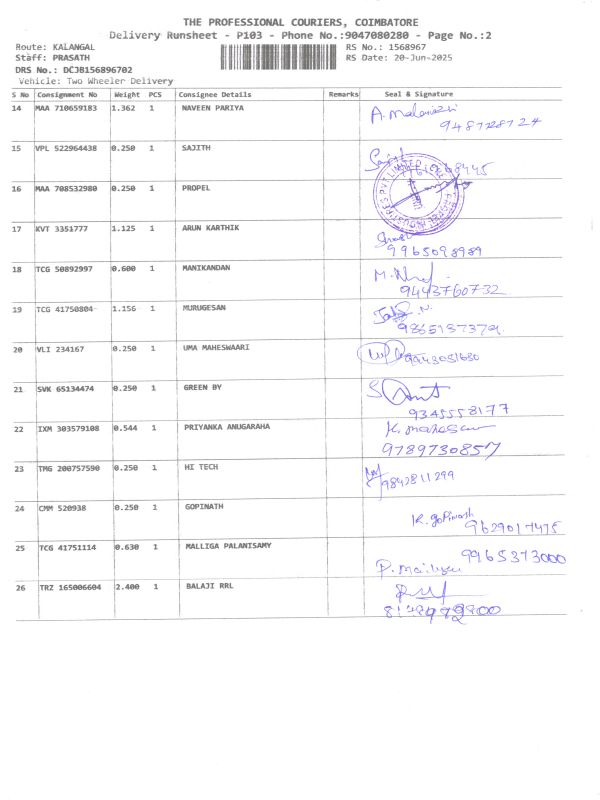 THE PROFESSIONAL COURIERS, COIMBATORE
Delivery Runsheet - P103 - Phone No.:9047080280 - Page No.:2
Route: KALANGAL RS No.: 1568967
Staff: PRASATH RS Date: 20-Jun-2025
DRS No.: DCJB156896702
Vehicle: Two Wheeler Delivery
S No Consignment No Weight PCS Consignee Details Remarks Seal & Signature
14 MAA 710659183 1.362 1 NAVEEN PARIYA
15 VPL 522964438 0.250 1 SAJITH
16 MAA 708532980 0.250 1 PROPEL
17 KVT 3351777 1.125 1 ARUN KARTHIK
9965098989
18 TCG 50892997 0.600 1 MANIKANDAN
9443760732
19 TCG 41750804 1.156 1 MURUGESAN
20 VLI 234167 0.250 1 UMA MAHESWAARI
21 SVK 65134474 0.250 1 GREEN BY
9345558177
22 IXM 303579108 0.544 1 PRIYANKA ANUGARAHA
9789730857
23 TMG 200757590 0.250 1 HI TECH
9842811299
24 CMM 520938 0.250 1 GOPINATH
K. gopinath
9629017475
25 TCG 41751114 0.630 1 MALLIGA PALANISAMY
9965373000
26 TRZ 165006604 2.400 1 BALAJI RRL